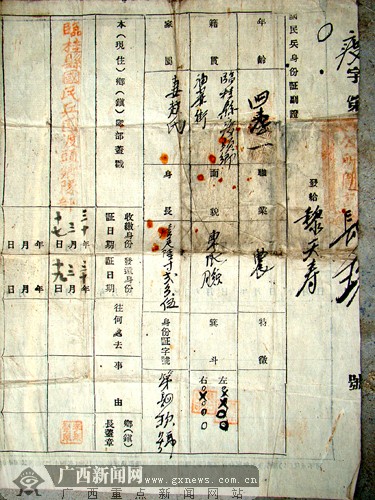 渡字第
號
國民兵身份証副證
發給 黎天寿
年齡 四拾一 職業 農 特徵
籍貫 臨桂縣渡頭鄉 面貌 東瓜臉 箕斗 左 右
家屬 妻趙氏 身長 身份証字號 號
本(現住)鄉(鎮)隊部蓋戳 收繳身份証日期 發還身份証日期 往何處去 事由 鄉(鎮)長蓋章
臨桂縣國民兵團渡頭鄉隊部
三十年三月十七日 年三月十九日
年月日 年月日
广西新闻网
www.gxnews.com.cn
广西重点新闻网站